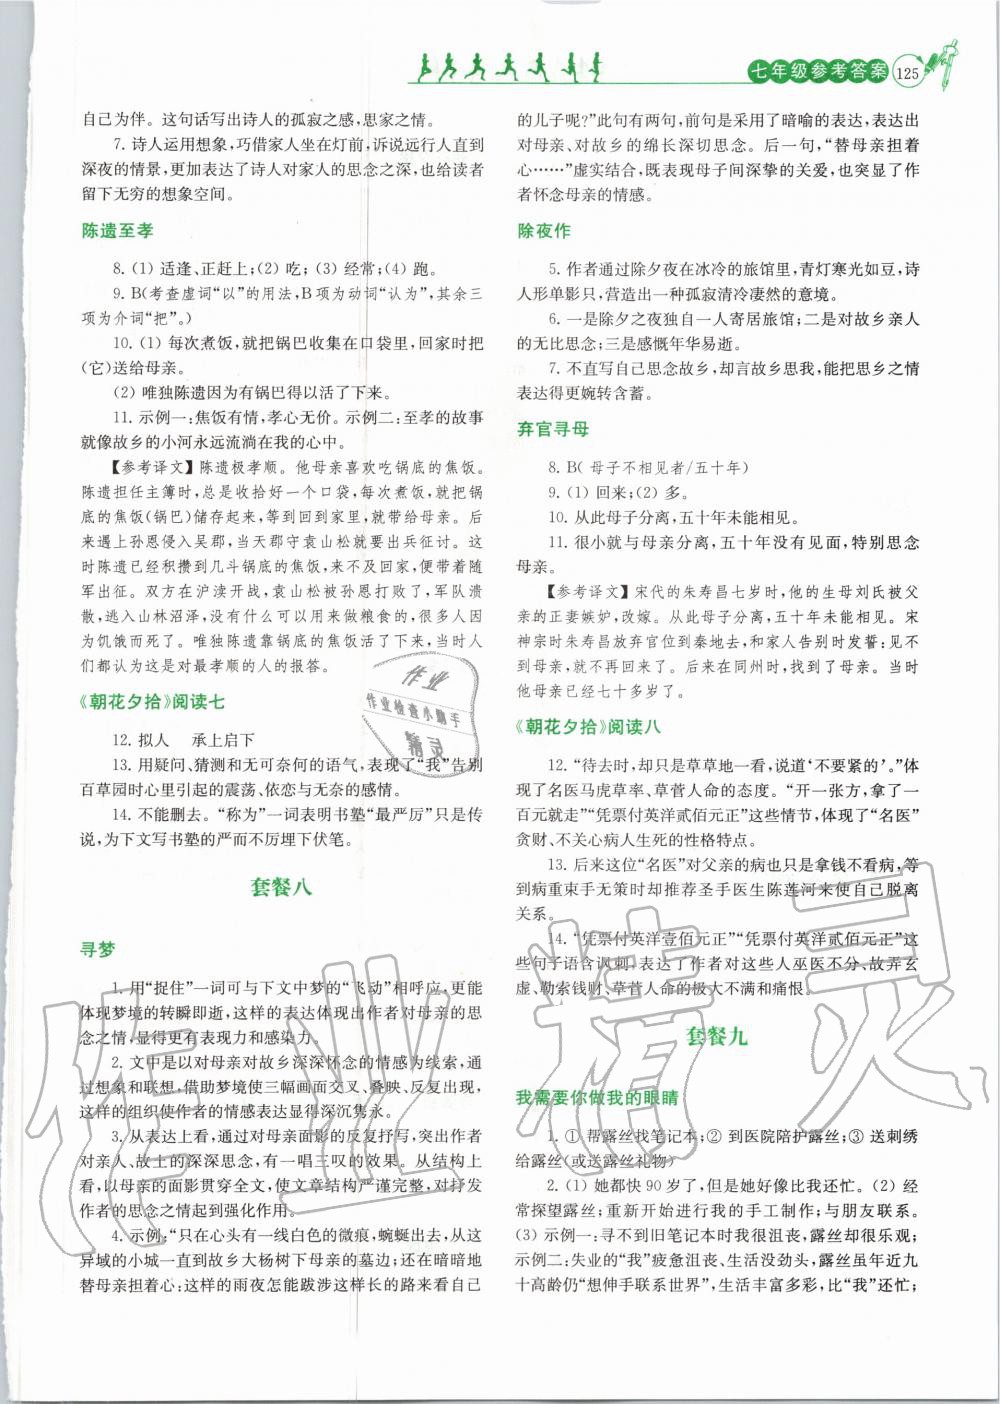 七年级参考答案 125
自己为伴。这句话写出诗人的孤寂之感，思家之情。
7. 诗人运用想象，巧借家人坐在灯前，诉说远行人直到
深夜的情景，更加表达了诗人对家人的思念之深，也给读者
留下无穷的想象空间。
陈遗至孝
8. (1) 适逢、正赶上；(2) 吃；(3) 经常；(4) 跑。
9. B(考查虚词“以”的用法，B项为动词“认为”，其余三
项为介词“把”。)
10. (1) 每次煮饭，就把锅巴收集在口袋里，回家时把
(它)送给母亲。
(2) 唯独陈遗因为有锅巴得以活了下来。
11. 示例一：焦饭有情，孝心无价。示例二：至孝的故事
就像故乡的小河永远流淌在我的心中。
【参考译文】陈遗极孝顺。他母亲喜欢吃锅底的焦饭。
陈遗担任主簿时，总是收拾好一个口袋，每次煮饭，就把锅
底的焦饭(锅巴)储存起来，等到回到家里，就带给母亲。后
来遇上孙恩侵入吴郡，当天郡守袁山松就要出兵征讨。这
时陈遗已经积攒到几斗锅底的焦饭，来不及回家，便带着随
军出征。双方在沪渎开战，袁山松被孙恩打败了，军队溃
散，逃入山林沼泽，没有什么可以用来做粮食的，很多人因
为饥饿而死了。唯独陈遗靠锅底的焦饭活了下来，当时人
们都认为这是对最孝顺的人的报答。
《朝花夕拾》阅读七
12. 拟人 承上启下
13. 用疑问、猜测和无可奈何的语气，表现了“我”告别
百草园时心里引起的震荡、依恋与无奈的感情。
14. 不能删去。“称为”一词表明书塾“最严厉”只是传
说，为下文写书塾的严而不厉埋下伏笔。
套餐八
寻梦
1. 用“捉住”一词可与下文中梦的“飞动”相呼应，更能
体现梦境的转瞬即逝，这样的表达体现出作者对母亲的思
念之情，显得更有表现力和感染力。
2. 文中是以对母亲对故乡深深怀念的情感为线索，通
过想象和联想，借助梦境使三幅画面交叉、叠映、反复出现，
这样的组织使作者的情感表达显得深沉隽永。
3. 从表达上看，通过对母亲面影的反复抒写，突出作者
对亲人、故土的深深思念，有一唱三叹的效果。从结构上
看，以母亲的面影贯穿全文，使文章结构严谨完整，对抒发
作者的思念之情起到强化作用。
4. 示例：“只在心头有一线白色的微痕，蜿蜒出去，从这
异域的小城一直到故乡大杨树下母亲的墓边；还在暗暗地
替母亲担着心：这样的雨夜怎能跋涉这样长的路来看自己
的儿子呢？”此句有两句，前句是采用了暗喻的表达，表达出
对母亲、对故乡的绵长深切思念。后一句，“替母亲担着
心……”虚实结合，既表现母子间深挚的关爱，也突显了作
者怀念母亲的情感。
除夜作
5. 作者通过除夕夜在冰冷的旅馆里，青灯寒光如豆，诗
人形单影只，营造出一种孤寂清冷凄然的意境。
6. 一是除夕之夜独自一人寄居旅馆；二是对故乡亲人
的无比思念；三是感慨年华易逝。
7. 不直写自己思念故乡，却言故乡思我，能把思乡之情
表达得更婉转含蓄。
弃官寻母
8. B( 母子不相见者/五十年)
9. (1) 回来；(2) 多。
10. 从此母子分离，五十年未能相见。
11. 很小就与母亲分离，五十年没有见面，特别思念
母亲。
【参考译文】宋代的朱寿昌七岁时，他的生母刘氏被父
亲的正妻嫉妒，改嫁。从此母子分离，五十年未能相见。宋
神宗时朱寿昌放弃官位到秦地去，和家人告别时发誓：见不
到母亲，就不再回来了。后来在同州时，找到了母亲。当时
他母亲已经七十多岁了。
《朝花夕拾》阅读八
12. “待去时，却只是草草地一看，说道‘不要紧的’。”体
现了名医马虎草率、草菅人命的态度。“开一张方，拿了一
百元就走”“凭票付英洋贰佰元正”这些情节，体现了“名医”
贪财、不关心病人生死的性格特点。
13. 后来这位“名医”对父亲的病也只是拿钱不看病，等
到病重束手无策时却推荐圣手医生陈莲河来使自己脱离
关系。
14. “凭票付英洋壹佰元正”“凭票付英洋贰佰元正”这
些句子语含讽刺，表现作者对这些人巫医不分、故弄玄
虚、勒索钱财、草菅人命的极大不满和痛恨。
套餐九
我需要你做我的眼睛
1. ① 帮露丝找笔记本；② 到医院陪护露丝；③ 送刺绣
给露丝(或送露丝礼物)
2. (1) 她都快90岁了，但是她好像比我还忙。(2) 经
常探望露丝；重新开始进行我的手工制作；与朋友联系。
(3) 示例一：寻不到旧笔记本时我很沮丧，露丝却很乐观；
示例二：失业的“我”疲惫沮丧、生活没劲头，露丝虽年近九
十高龄仍“想伸手联系世界”，生活丰富多彩，比“我”还忙；
作业
作业检查小助手
精灵
作业精灵